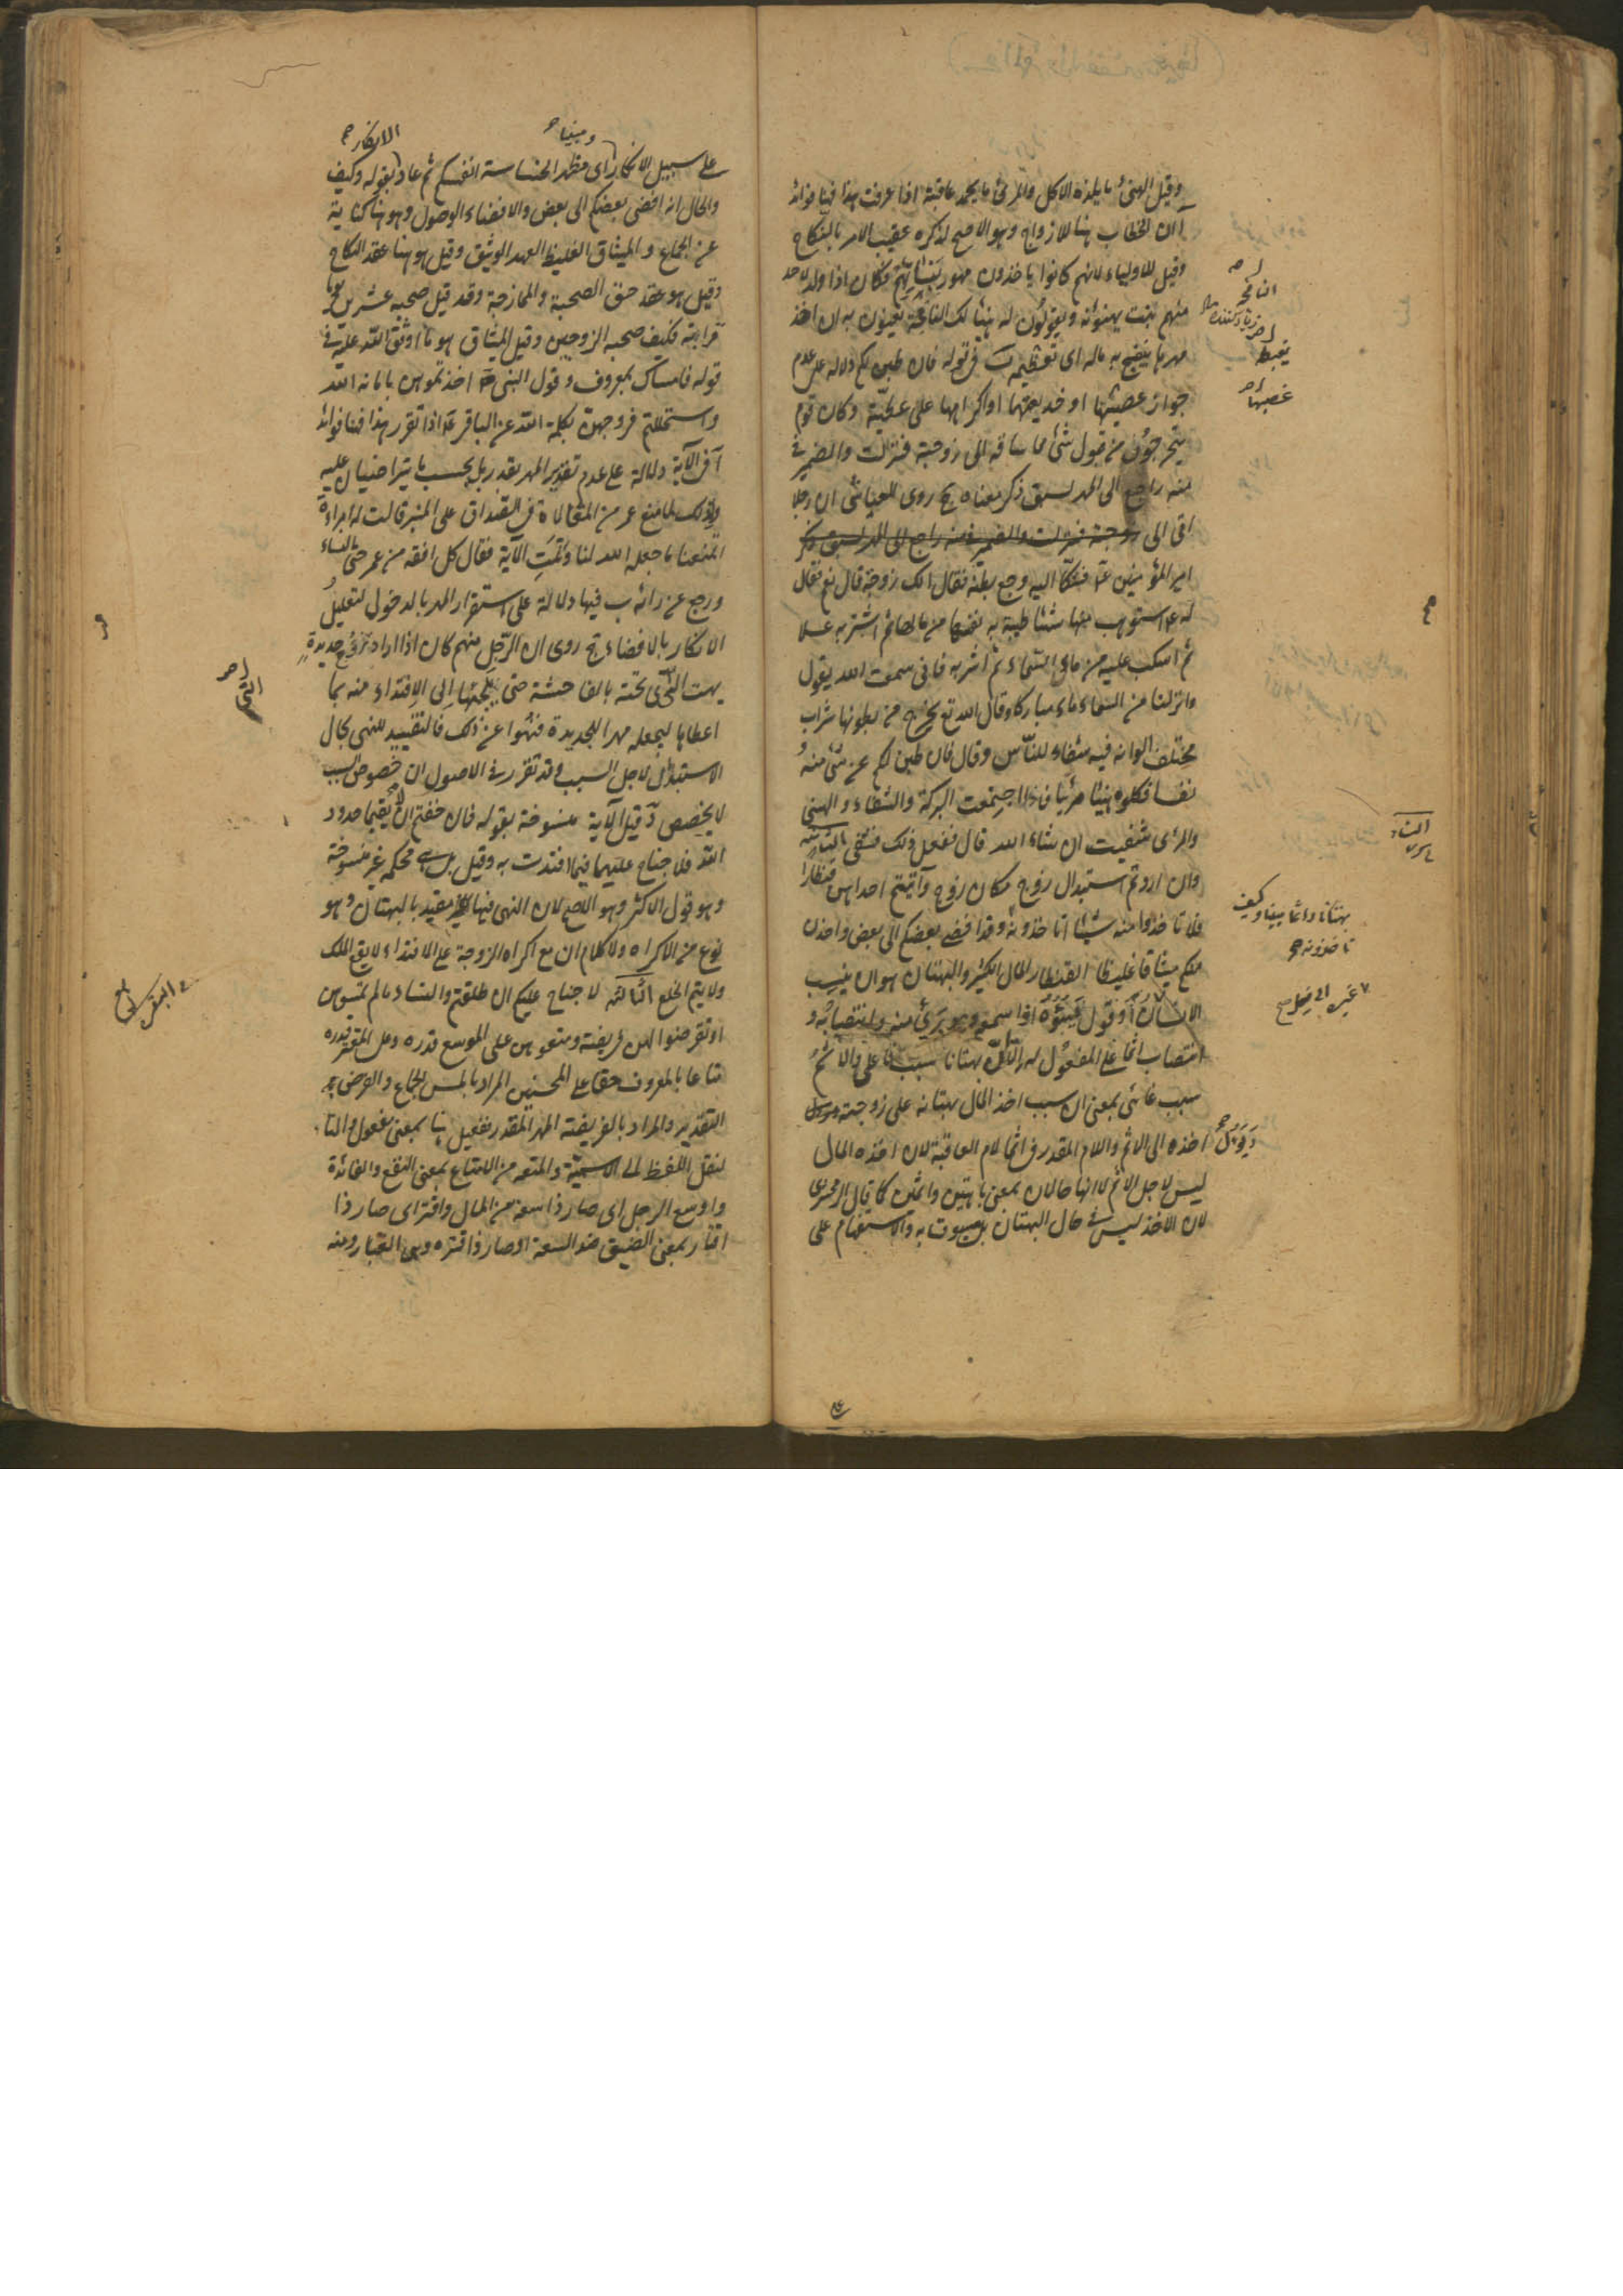 وقيل الهنئ ما يلذه الاكل والمرئ ما يحمد عاقبة اذا عرفت هذا فهنا فوائد
ا ان الخطاب هنا للازواج وهو الاصح لذكره عقيب الامر بالنكاح
وقيل للاولياء لانهم كانوا ياخذون مهور بناتهم فكان اذا ولد لاحد
منهم بنت يهنئونه ويقولون له هنيئا لك النافجة يعنون به ان اخذ
مهرها ينفج به ماله اى تعظيمه ب فى قوله فان طبن لكم دلالة على عدم
جواز غصبها او خديعتها او اكراهها على عطية وكان قوم
يتحرجون من قبول شئ مما ساقه الى زوجته فنزلت والضمير فى
منه راجع الى المهر لسبق ذكر معناه ج روى العياشى ان رجلا
اتى الى زوجته فنزلت والضمير فى منه راجع الى المهر لسبق ذكر
امير المؤمنين ع فشكا اليه وجع بطنه فقال الك زوجة قال نعم فقال
له ع استوهب منها شيئا طيبة به نفسها من مالها ثم اشتر به عسلا
ثم اسكب عليه من ماء السماء ثم اشربه فانى سمعت الله يقول
وانزلنا من السماء ماء مباركا وقال الله تع يخرج من بطونها شراب
مختلف الوانه فيه شفاء للناس وقال فان طبن لكم عن شئ منه
نفسا فكلوه هنيئا مريئا فاذا اجتمعت البركة والشفاء والهنئ
والمرئ شفيت ان شاء الله قال ففعل ذلك فشفى الثانية
وان اردتم استبدال زوج مكان زوج وآتيتم احداهن قنطارا
فلا تاخذوا منه شيئا اتاخذونه وقد افضى بعضكم الى بعض واخذن
منكم ميثاقا غليظا القنطار المال الكثير والبهتان هو ان ينسب
الانسان او قول يبهته اذا سمعه وهو برئ منه وانتصابه و
انتصاب اثما على المفعول له الا ان بهتانا سبب فاعلى والاثم
سبب غائى بمعنى ان سبب اخذ المال بهتانه على زوجته
ويؤل اخذه الى الاثم واللام المقدر فى اثما لام العاقبة لان اخذه المال
ليس لاجل الاثم لا انها حالان بمعنى باهتين واثمين كما قال الزمخشرى
لان الاخذ ليس فى حال البهتان بل مسبوق به والاستفهام على
النافجة
غصبها
النساء
بهتانا واثما مبينا وكيف
تاخذونه
على سبيل الانكار اى مظهر الخساسة انفسكم ثم عاد بقوله وكيف
والحال انه افضى بعضكم الى بعض والافضاء الوصول وهو هنا كناية
عن الجماع والميثاق الغليظ العهد الوثيق وقيل هو هنا عقد النكاح
وقيل هو عقد حق الصحبة والممازجة وقد قيل صحبة عشرين يوما
قرابة فكيف صحبة الزوجين وقيل الميثاق هو ما اوثق الله عليه فى
قوله فامساك بمعروف وقول النبى اخذتموهن بامانة الله
واستحللتم فروجهن بكلمة الله عن الباقر ع اذا تقرر هذا فهنا فوائد
ا فى الآية دلالة على عدم تقدير المهر بقدر بل بحسب ما يتراضيان عليه
ولذلك لما منع عمر من المغالاة فى الصداق على المنبر قالت له امراة
اتمنعنا ما جعله الله لنا وتلت الآية فقال كل افقه من عمر حتى النساء
ورجع عن رائه ب فيها دلالة على استقرار المهر بالدخول لتعليل
الانكار بالافضاء ج روى ان الرجل منهم كان اذا اراد تزوج جديدة
بهت التى تحته بالفاحشة حتى يلجئها الى الافتداء منه بما
اعطاها ليجعله مهرا للجديدة فنهوا عن ذلك فالتقييد للنهى بحال
الاستبدال لاجل السبب وقد تقرر فى الاصول ان خصوص السبب
لا يخصص د قيل الآية منسوخة بقوله فان خفتم الا يقيما حدود
الله فلا جناح عليهما فيما افتدت به وقيل بل هى محكمة غير منسوخة
وهو قول الاكثر وهو الاصح لان النهى فيها مقيد بالبهتان وهو
نوع من الاكراه ولا كلام ان مع اكراه الزوجة على الافتداء لا يقع الملك
ولا يتم الخلع الثالثة لا جناح عليكم ان طلقتم النساء ما لم تمسوهن
او تفرضوا لهن فريضة ومتعوهن على الموسع قدره وعلى المقتر قدره
متاعا بالمعروف حقا على المحسنين المراد بالمس الجماع والفرض
التقدير والمراد بالفريضة المهر المقدر ففعيل هنا بمعنى مفعول والتاء
لنقل اللفظ الى الاسمية والمتعة من الامتاع بمعنى النفع والفائدة
واوسع الرجل اى صار ذا سعة من المال واقتر اى صار ذا
اقتار بمعنى الضيق ضد السعة او صار ذا قترة وهى الغبار ومنه
ومبينا
الانكار
البقرة